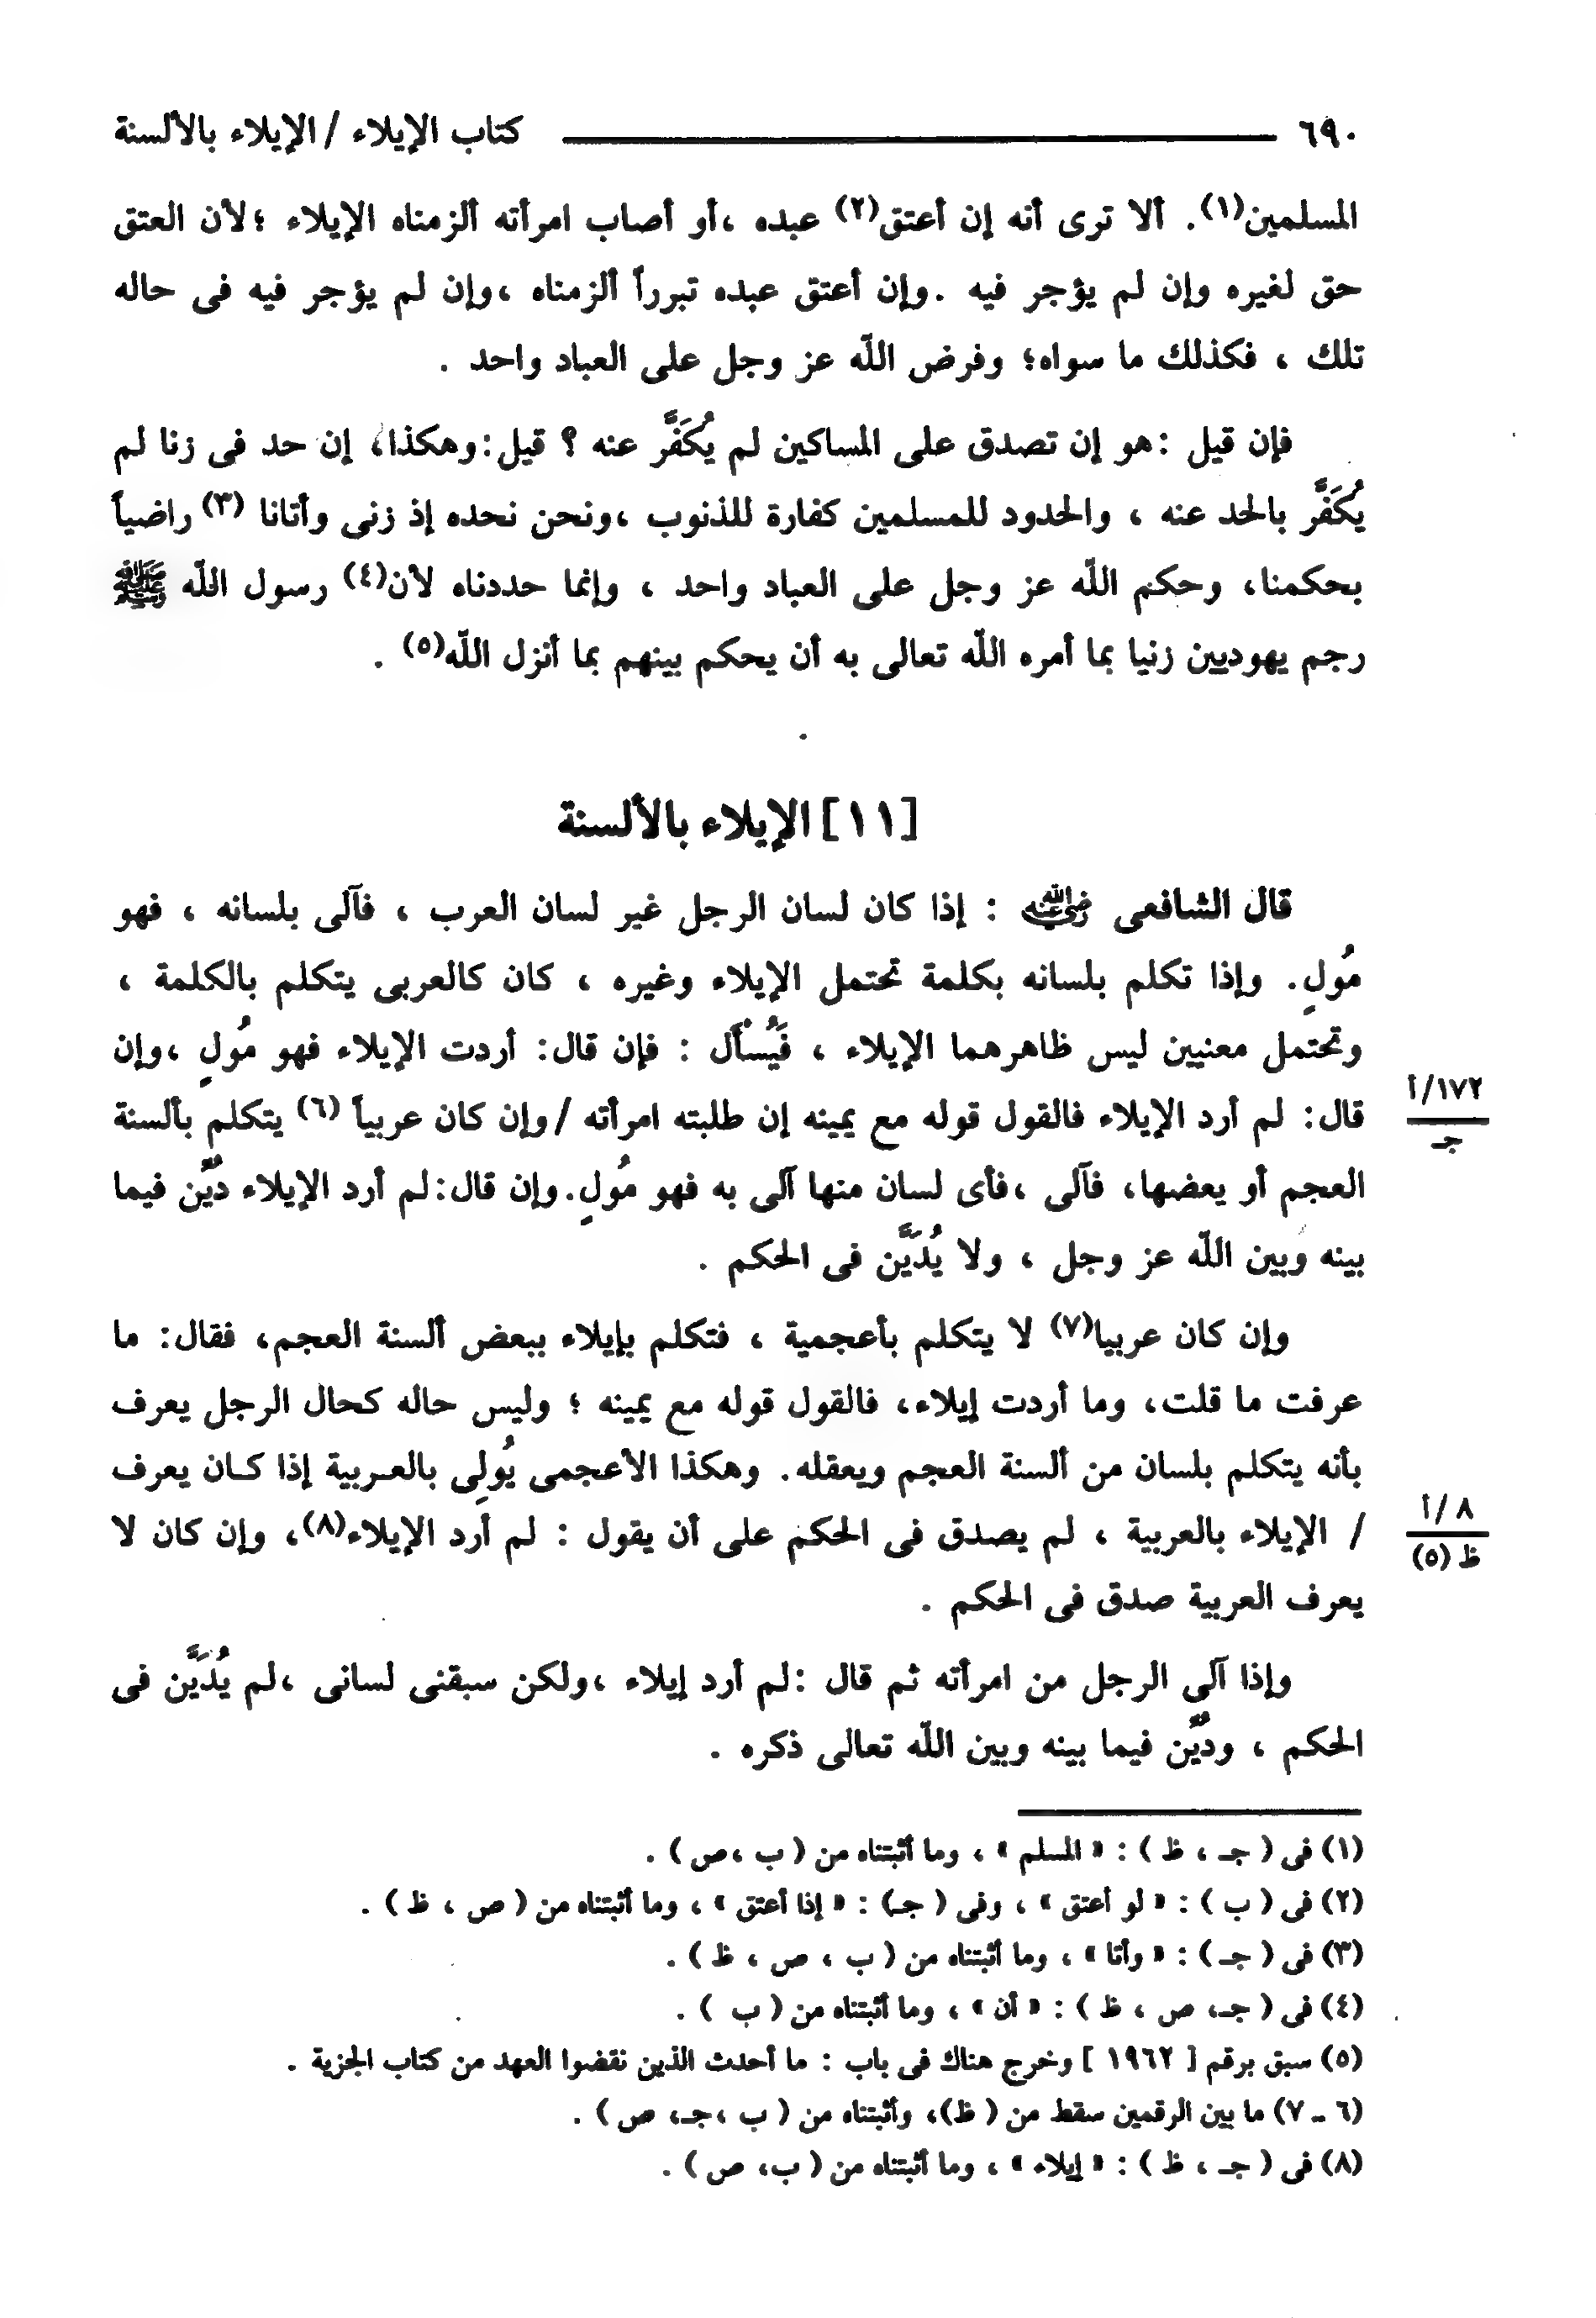 ٦٩٠ كتاب الإيلاء / الإيلاء بالألسنة
المسلمين(١). ألا ترى أنه إن أعتق(٢) عبده ،أو أصاب امرأته ألزمناه الإيلاء ؛لأن العتق
حق لغيره وإن لم يؤجر فيه .وإن أعتق عبده تبرراً ألزمناه ،وإن لم يؤجر فيه فى حاله
تلك ، فكذلك ما سواه؛ وفرض اللّه عز وجل على العباد واحد .
فإن قيل :هو إن تصدق على المساكين لم يُكَفَّر عنه ؟ قيل:وهكذا، إن حد فى زنا لم
يُكَفَّر بالحد عنه ، والحدود للمسلمين كفارة للذنوب ،ونحن نحده إذ زنى وأتانا (٣) راضياً
بحكمنا، وحكم اللّه عز وجل على العباد واحد ، وإنما حددناه لأن(٤) رسول اللّه ﷺ
رجم يهوديين زنيا بما أمره اللّه تعالى به أن يحكم بينهم بما أنزل اللّه(٥) .
[١١] الإيلاء بالألسنة
قال الشافعى رضي الله عنه : إذا كان لسان الرجل غير لسان العرب ، فآلى بلسانه ، فهو
مُولٍ. وإذا تكلم بلسانه بكلمة تحتمل الإيلاء وغيره ، كان كالعربى يتكلم بالكلمة ،
وتحتمل معنيين ليس ظاهرهما الإيلاء ، فَيُسْأَل : فإن قال: أردت الإيلاء فهو مُولٍ ،وإن
قال: لم أرد الإيلاء فالقول قوله مع يمينه إن طلبته امرأته /وإن كان عربياً (٦) يتكلم بألسنة
١٧٢/أ
جـ
العجم أو يعضها، فآلى ،فأى لسان منها آلى به فهو مُولٍ.وإن قال:لم أرد الإيلاء دُيِّن فيما
بينه وبين اللّه عز وجل ، ولا يُدَيَّن فى الحكم .
وإن كان عربيا(٧) لا يتكلم بأعجمية ، فتكلم بإيلاء ببعض ألسنة العجم، فقال: ما
عرفت ما قلت، وما أردت إيلاء، فالقول قوله مع يمينه ؛ وليس حاله كحال الرجل يعرف
بأنه يتكلم بلسان من ألسنة العجم ويعقله. وهكذا الأعجمى يُولِى بالعـربية إذا كـان يعرف
/ الإيلاء بالعربية ، لم يصدق فى الحكم على أن يقول : لم أرد الإيلاء(٨)، وإن كان لا
٨ /أ
ظ (٥)
يعرف العربية صدق فى الحكم .
وإذا آلى الرجل من امرأته ثم قال :لم أرد إيلاء ،ولكن سبقنى لسانى ،لم يُدَيَّن فى
الحكم ، ودُيِّن فيما بينه وبين اللّه تعالى ذكره .
(١) فى ( جـ ، ظ ) : « المسلم » ، وما أثبتناه من ( ب ،ص ) .
(٢) فى ( ب ) : « لو أعتق » ، وفى ( جـ) : « إذا أعتق » ، وما أثبتناه من ( ص ، ظ ) .
(٣) فى ( جـ ) : « وأتا » ، وما أثبتناه من ( ب ، ص ، ظ ) .
(٤) فى ( جـ، ص ، ظ ) : « أن » ، وما أثبتناه من ( ب ) .
(٥) سبق برقم [ ١٩٦٢ ] وخرج هناك فى باب : ما أحدث الذين نقضوا العهد من كتاب الجزية .
(٦ ـ ٧) ما بين الرقمين سقط من ( ظ)، وأثبتناه من ( ب ،جـ، ص ) .
(٨) فى ( جـ ، ظ ) : « إيلاء » ، وما أثبتناه من ( ب، ص ) .